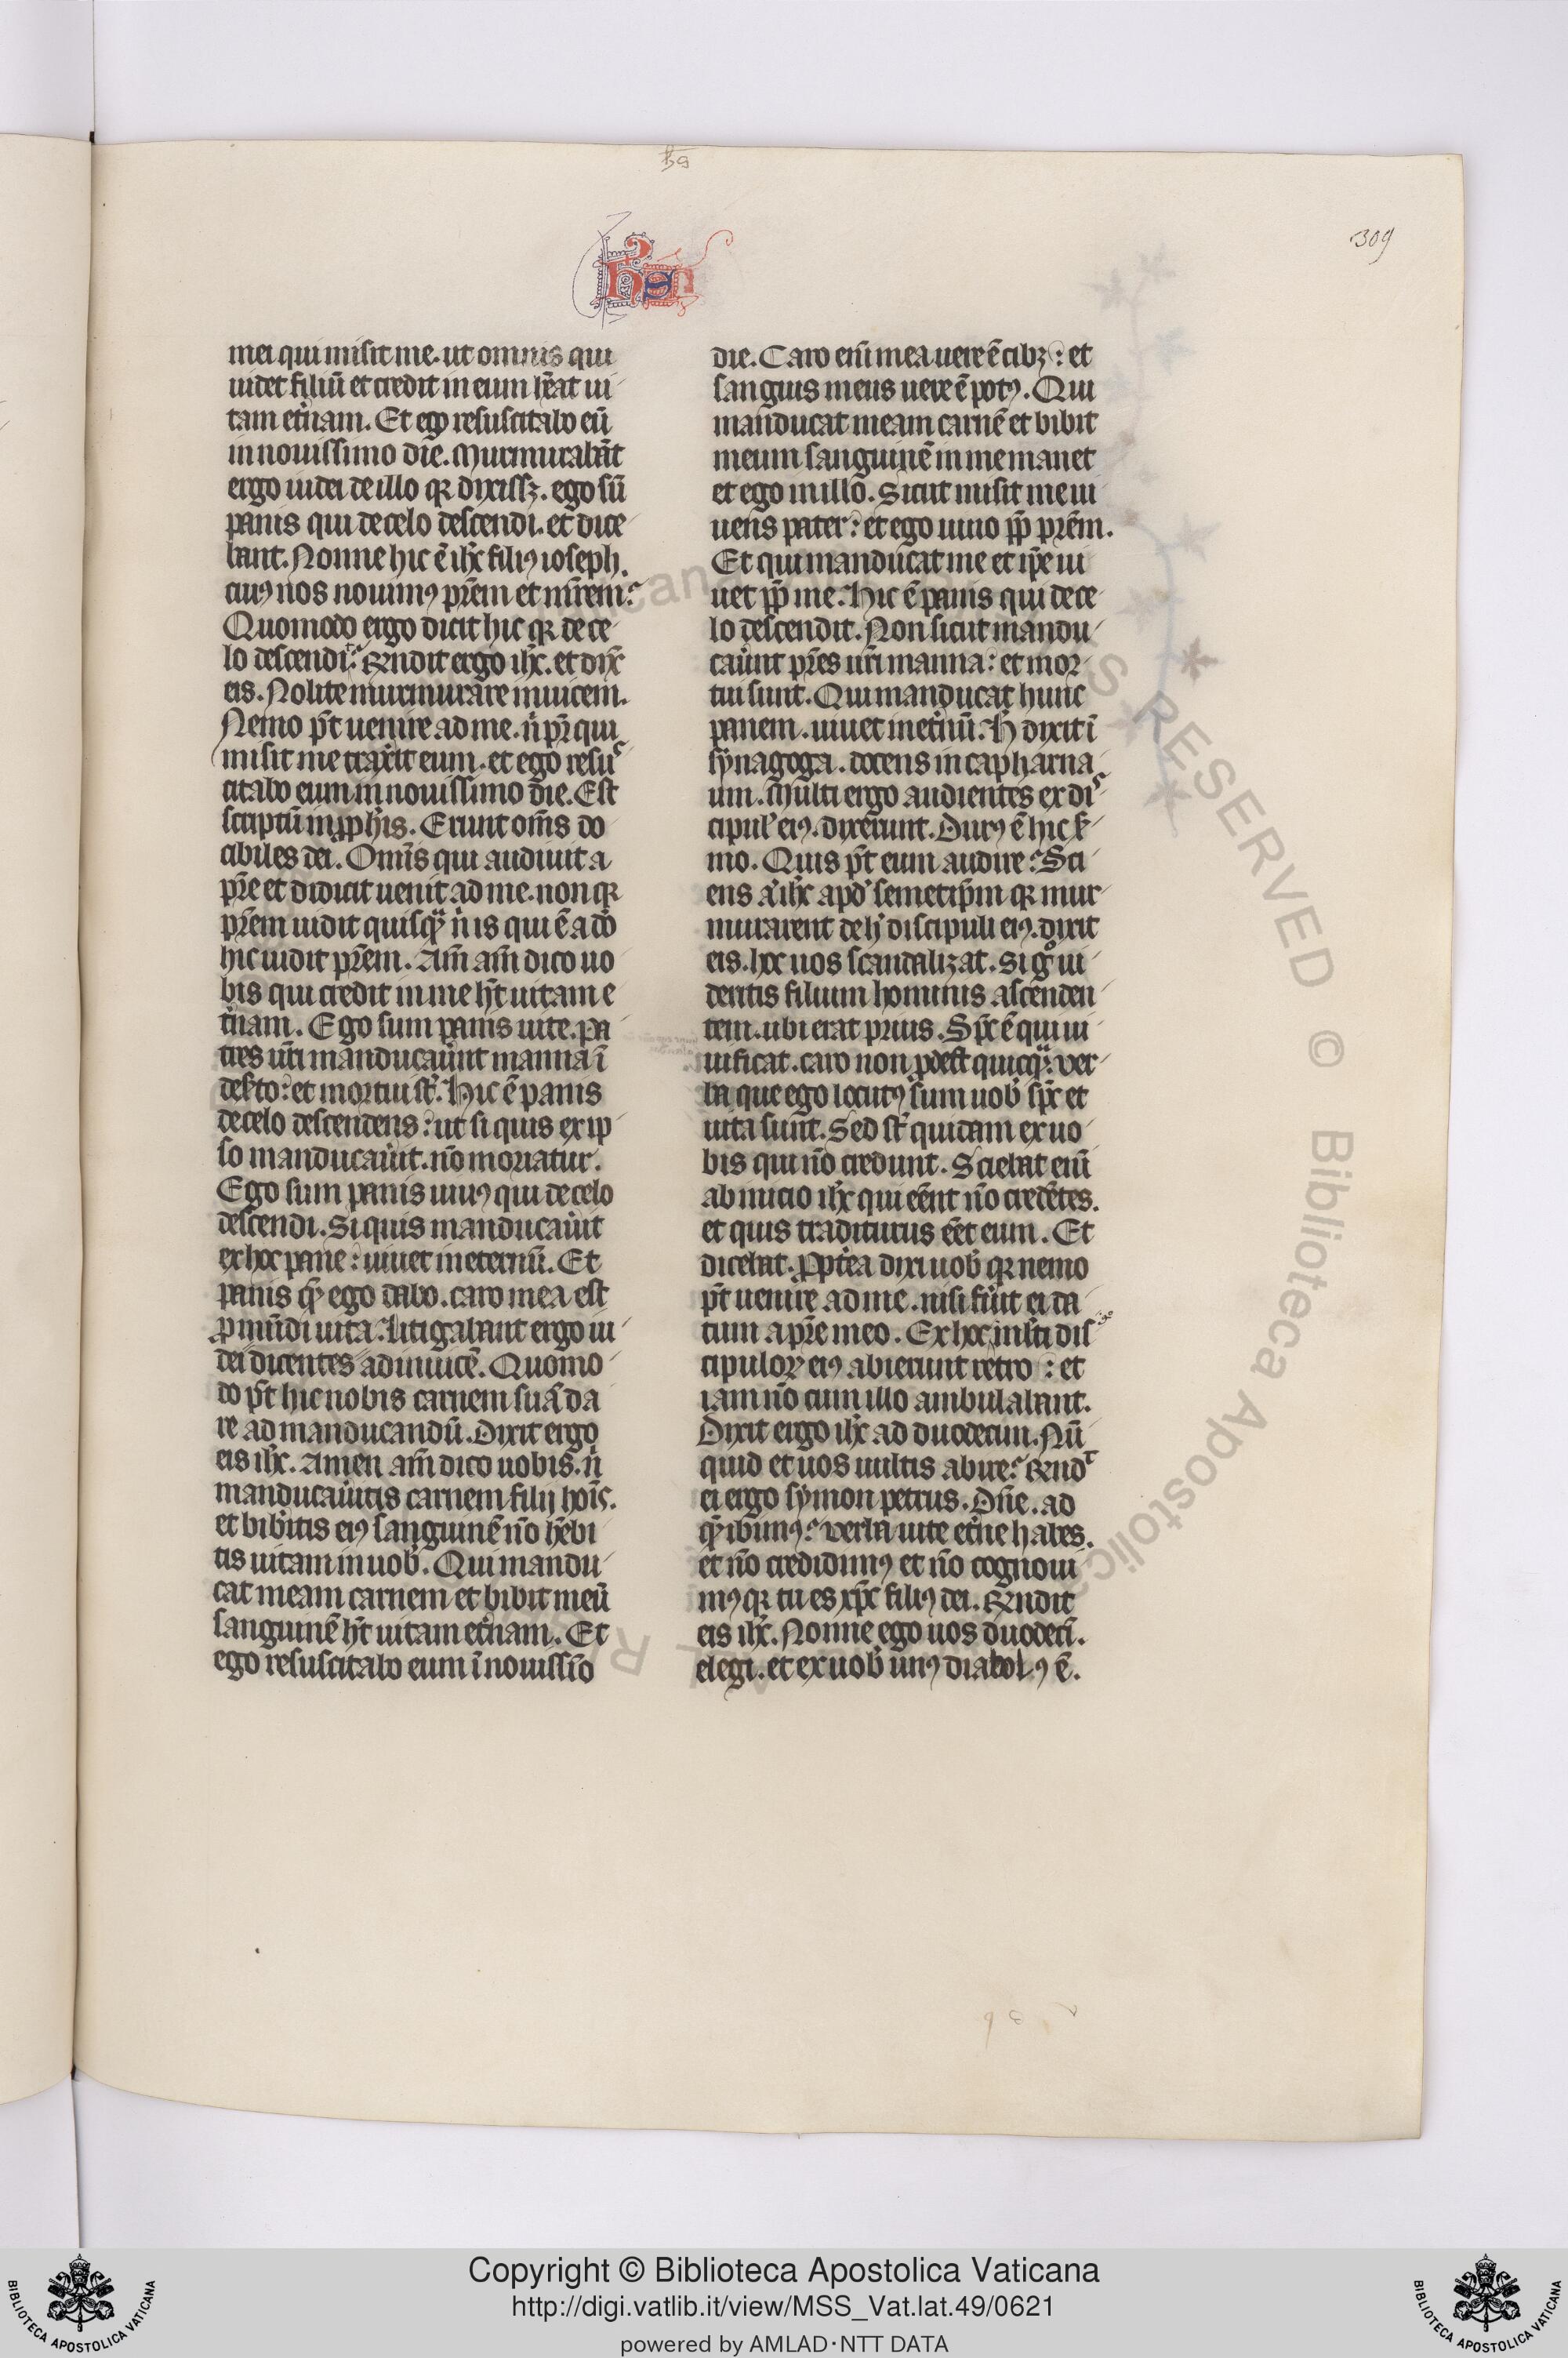 hꝰ
309
mei qui misit me. ut omnis qui
uidet filiū et credit in eum hēat ui
tam et̾nam. Et ego resuscitabo eū
in nouissimo die. Murmurabāt
ergo iudei de illo qꝛ dixissꝫ. ego sū
panis qui de celo descendi. et dice
bant. Nonne hic ē ih̄c filiꝰ ioseph.
cuiꝰ nos nouimꝰ pr̄em et mr̄em?
Quomodo ergo dicit hic qꝛ de ce
lo descendi? Rn̄dit ergo ih̄c. et dix̄
eis. Nolite murmurare inuicem.
Nemo pt̄ uenire ad me. n̄ pr̄ qui
misit me trax̾it eum. et ego resus
citabo eum in nouissimo die. Est
scriptū in ꝓphīs. Erunt om̄s do
cibiles dei. Omīs qui audiuit a
pr̄e et didicit uenit ad me. non qꝛ
pr̄em uidit quisqȝ n̄ is qui ē a dō
hic uidit pr̄em. Am̄ am̄ dico uo
bis qui credit in me ht̄ uitam e
t̾nam. Ego sum panis uite. pa
tres ur̄i manducauer̄unt manna ī
des̾to: et mortui st̄. Hic ē panis
de celo descendens: ut si quis ex ip
so manducau̾it. nō moriatur.
Ego sum panis uiuꝰ qui de celo
descendi. Si quis manducau̾it
ex hoc pane: uiuet in eternū. Et
panis qȝ ego dabo. caro mea est
ꝓ mundi uita. Litigabant ergo iu
dei dicentes ad inuicē. Quomo
do pt̄ hic nobis carnem suā da
re ad manducandū. Dixit ergo
eis ih̄c. Amen am̄ dico uobis. n̄
manducau̾itis carnem filij hoīs.
et bib̾itis eiꝰ sanguinē nō hēbi
tis uitam in uob̾. Qui mandu
cat meam carnem et bibit meū
sanguinē ht̄ uitam et̾nam. Et
ego resuscitabo eum ī nouissīo
die. Caro eni̅ mea uere ē cibꝫ: et
sanguis meus uere ē potꝰ. Qui
manducat meam carnē et bibit
meum sanguinē in me manet
et ego in illo. Sicut misit me ui
uens pater: et ego uiuo ꝓp̄ pr̄em.
Et qui manducat me et ip̄e ui
uet ꝓp̄ me. Hic ē panis qui de ce
lo descendit. Non sicut mandu
cau̾unt pr̄es ur̄i manna: et mor
tui sunt. Qui manducat hunc
panem. uiuet in et̾nū. H̄ dixit ī
synagoga. docens in capharna
um. Multi ergo audientes ex dis
cipul̾ eiꝰ. dixerunt. Durꝰ ē hic s̾
mo. Quis pt̄ eum audire? Sci
ens aͥ ih̄c apd̾ semetip̄m qꝛ mur
murarent de h̾ discipuli eiꝰ. dixit
eis. hoc uos scandalizat. si gͦ ui
deritis filium hominis ascenden
tem. ubi erat prius. Sp̄c ē qui ui
uificat. caro non ꝓdest quicqȝ. ver
ba que ego locutꝰ sum uob̾ sp̄c et
uita sunt. Sed st̄ quidam ex uo
bis qui nō credunt. Sciebat eni̅
ab inicio ih̄c qui eēnt nō credētes.
et quis traditurus eēt eum. Et
dicebat. Ꝓpt̾ea dixi uob̾ qꝛ nemo
pt̄ uenire ad me. nisi fu̾it ei da
tum a pr̄e meo. Ex hoc multi dis
cipuloꝝ eiꝰ abierunt retro: et
iam nō cum illo ambulabant.
Dixit ergo ih̄c ad duodecim. Nū
quid et uos uultis abire? Rn̄dt
ei ergo symon petrus. Dn̄e. ad
qȝ ibimꝰ? verba uite et̾ne habes.
et nō credidimꝰ et nō cognoui
mꝰ qꝛ tu es xp̄c filiꝰ dei. Rn̄dit
eis ih̄c. Nonne ego uos duodecī.
elegi. et ex uob̾ unꝰ diabolꝰ ē.
Copyright © Biblioteca Apostolica Vaticana
http://digi.vatlib.it/view/MSS_Vat.lat.49/0621
powered by AMLAD·NTT DATA
BIBLIOTECA APOSTOLICA VATICANA
BIBLIOTECA APOSTOLICA VATICANA